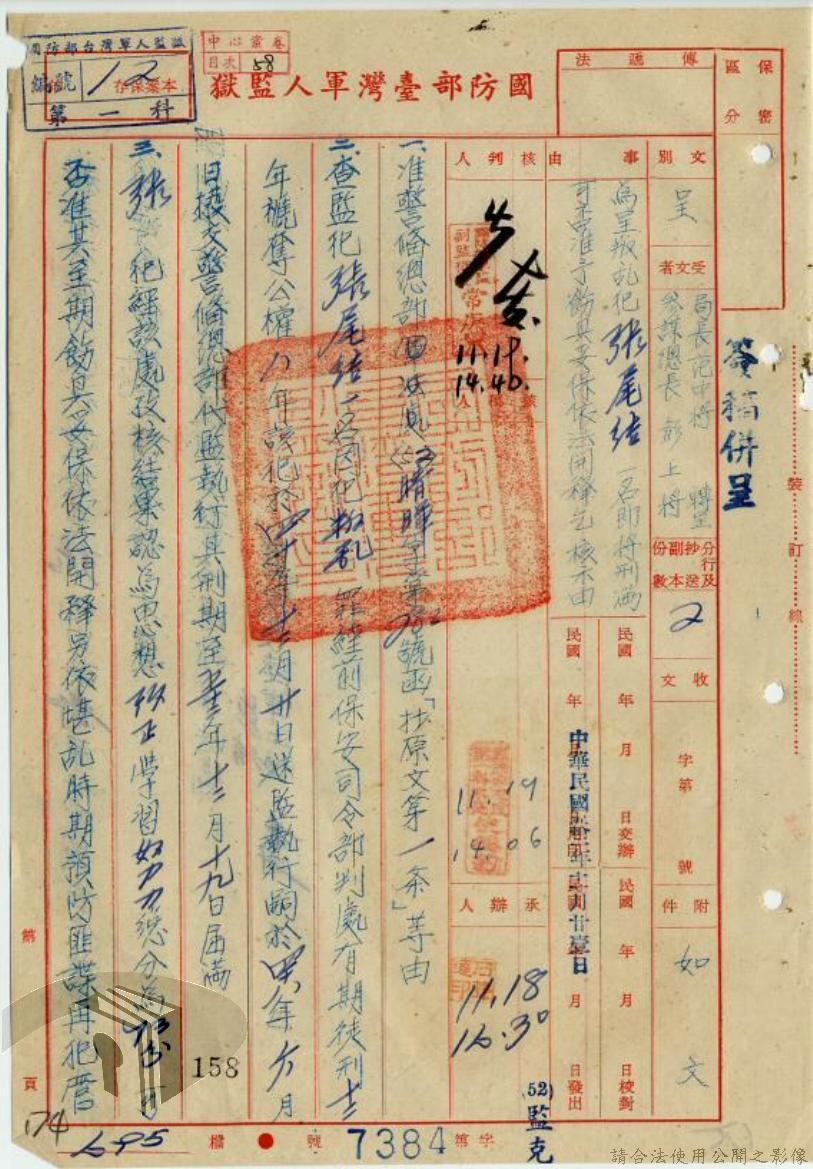 保密
區分
傳遞法
國防部臺灣軍人監獄
中心檔卷
目次 58
國防部台灣軍人監獄
編號 12
本案保存
第一科
簽稿併呈
裝訂線
文別
呈
受文者
局長范中將 轉呈
參謀總長彭上將
分行及抄送副本份數
2
收文
字第
號
附件
如文
事由
為呈叛乱犯張尾结一名即將刑滿
可否准予飭具妥保依法開釋乞核示由
民國 年 月 日交辦
民國 年 月 日校對
民國 年 月 日發出
中華民國
核判人
11.19.
14.40.
11.19
14.06
承辦人
11.18
16.30
一、准警備總部軍法處
晴暉字第
號函「抄原文第一条」等由
二、查監犯張尾结一名因犯叛乱罪經前保安司令部判處有期徒刑十二
年褫奪公權八年該犯於
十二月廿日送監執行嗣於
年
月
日撥交警備總部代監執行其刑期至五十二年十二月十九日屆滿
三、張
犯經該處攷核結果認為思想
學習努力總分為
可
否准其至期飭具妥保依法開釋另依堪乱時期預防匪諜再犯
158
第
頁
174
695
檔
號
7384
字第
(52)監克
請合法使用公開之影像